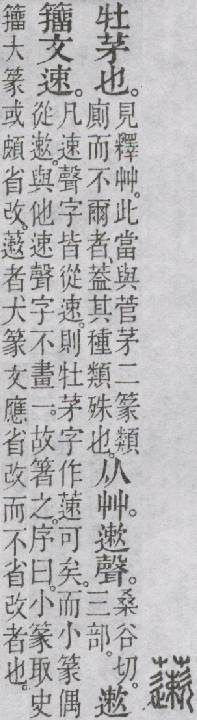 藗
牡茅也。見釋艸。此當與菅茅二篆類
廁而不爾者。葢其種類殊也。从艸。遬聲。桑谷切。
三部。遬
籒文速。凡速聲字皆從速。則牡茅字作可矣。而小篆偶
從遬。與他速聲字不畫一。故箸之。序曰。小篆取史
籒大篆或頗省改。藗者犬篆文應省改而不省改者也。